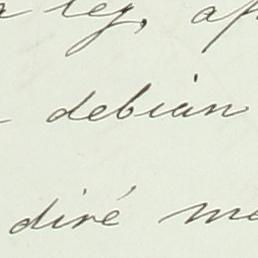 ley, a
debian
diré me